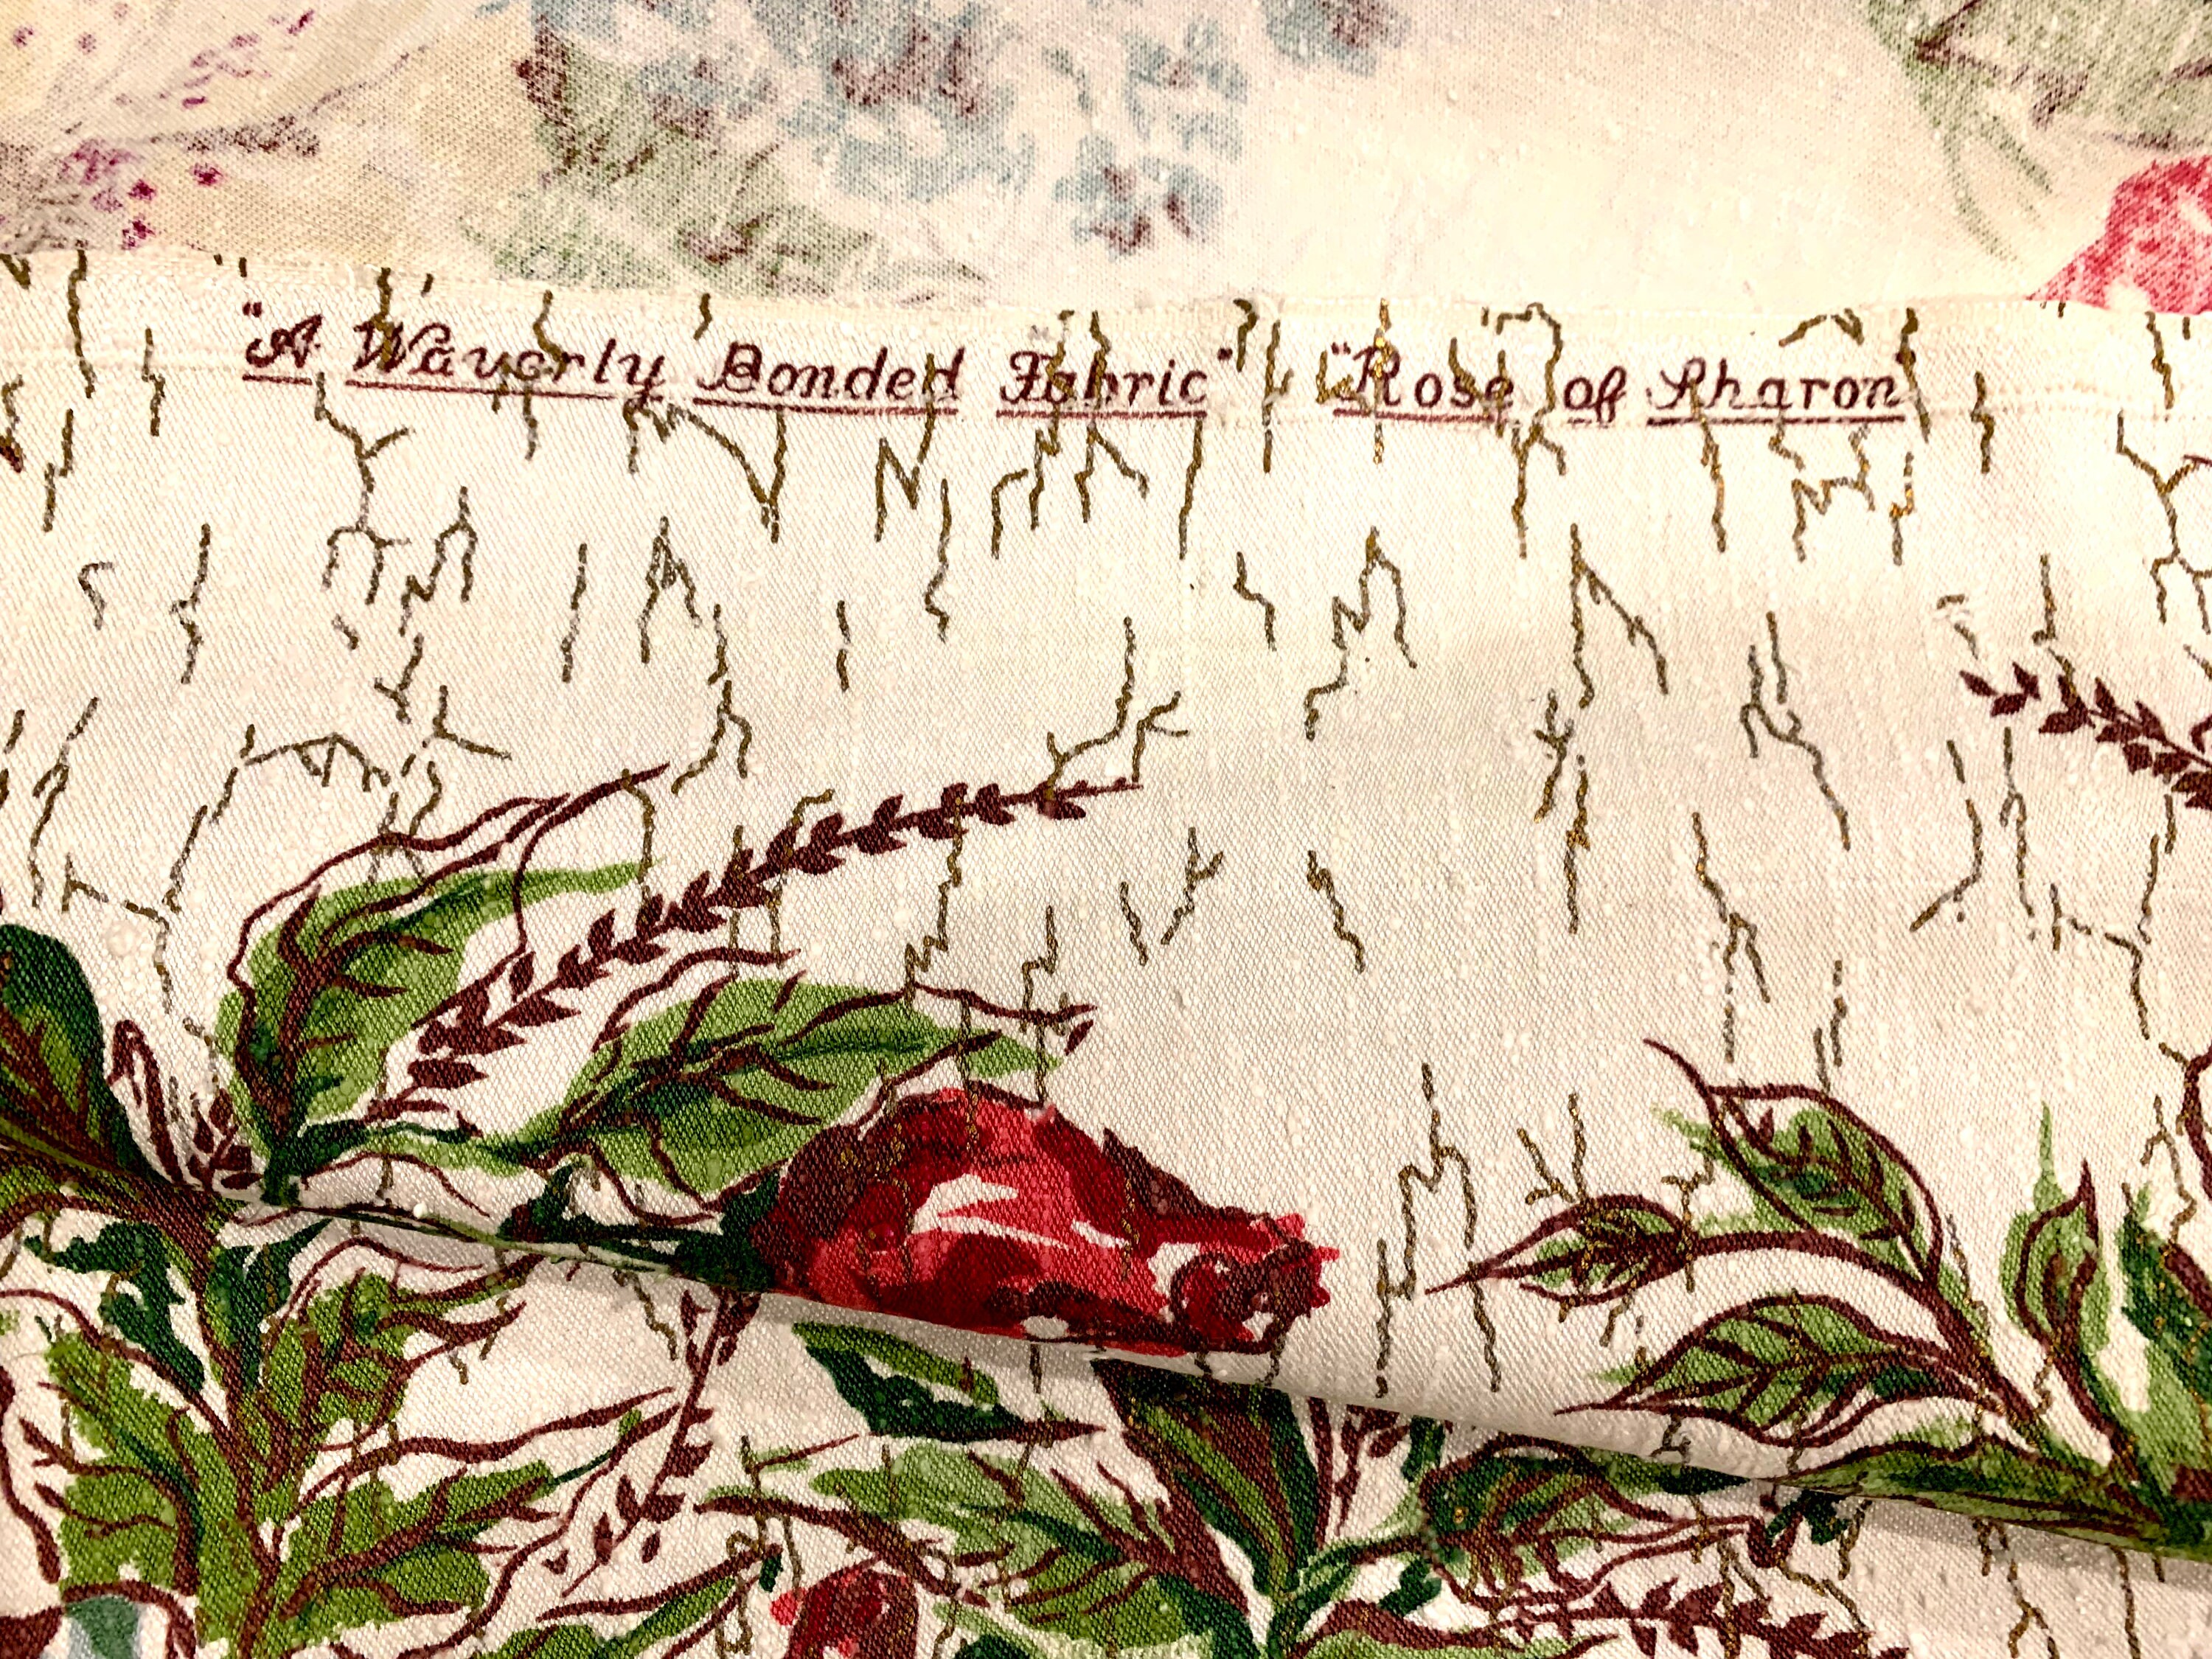 "A Waverly Bonded Fabric" "Rose of Sharon